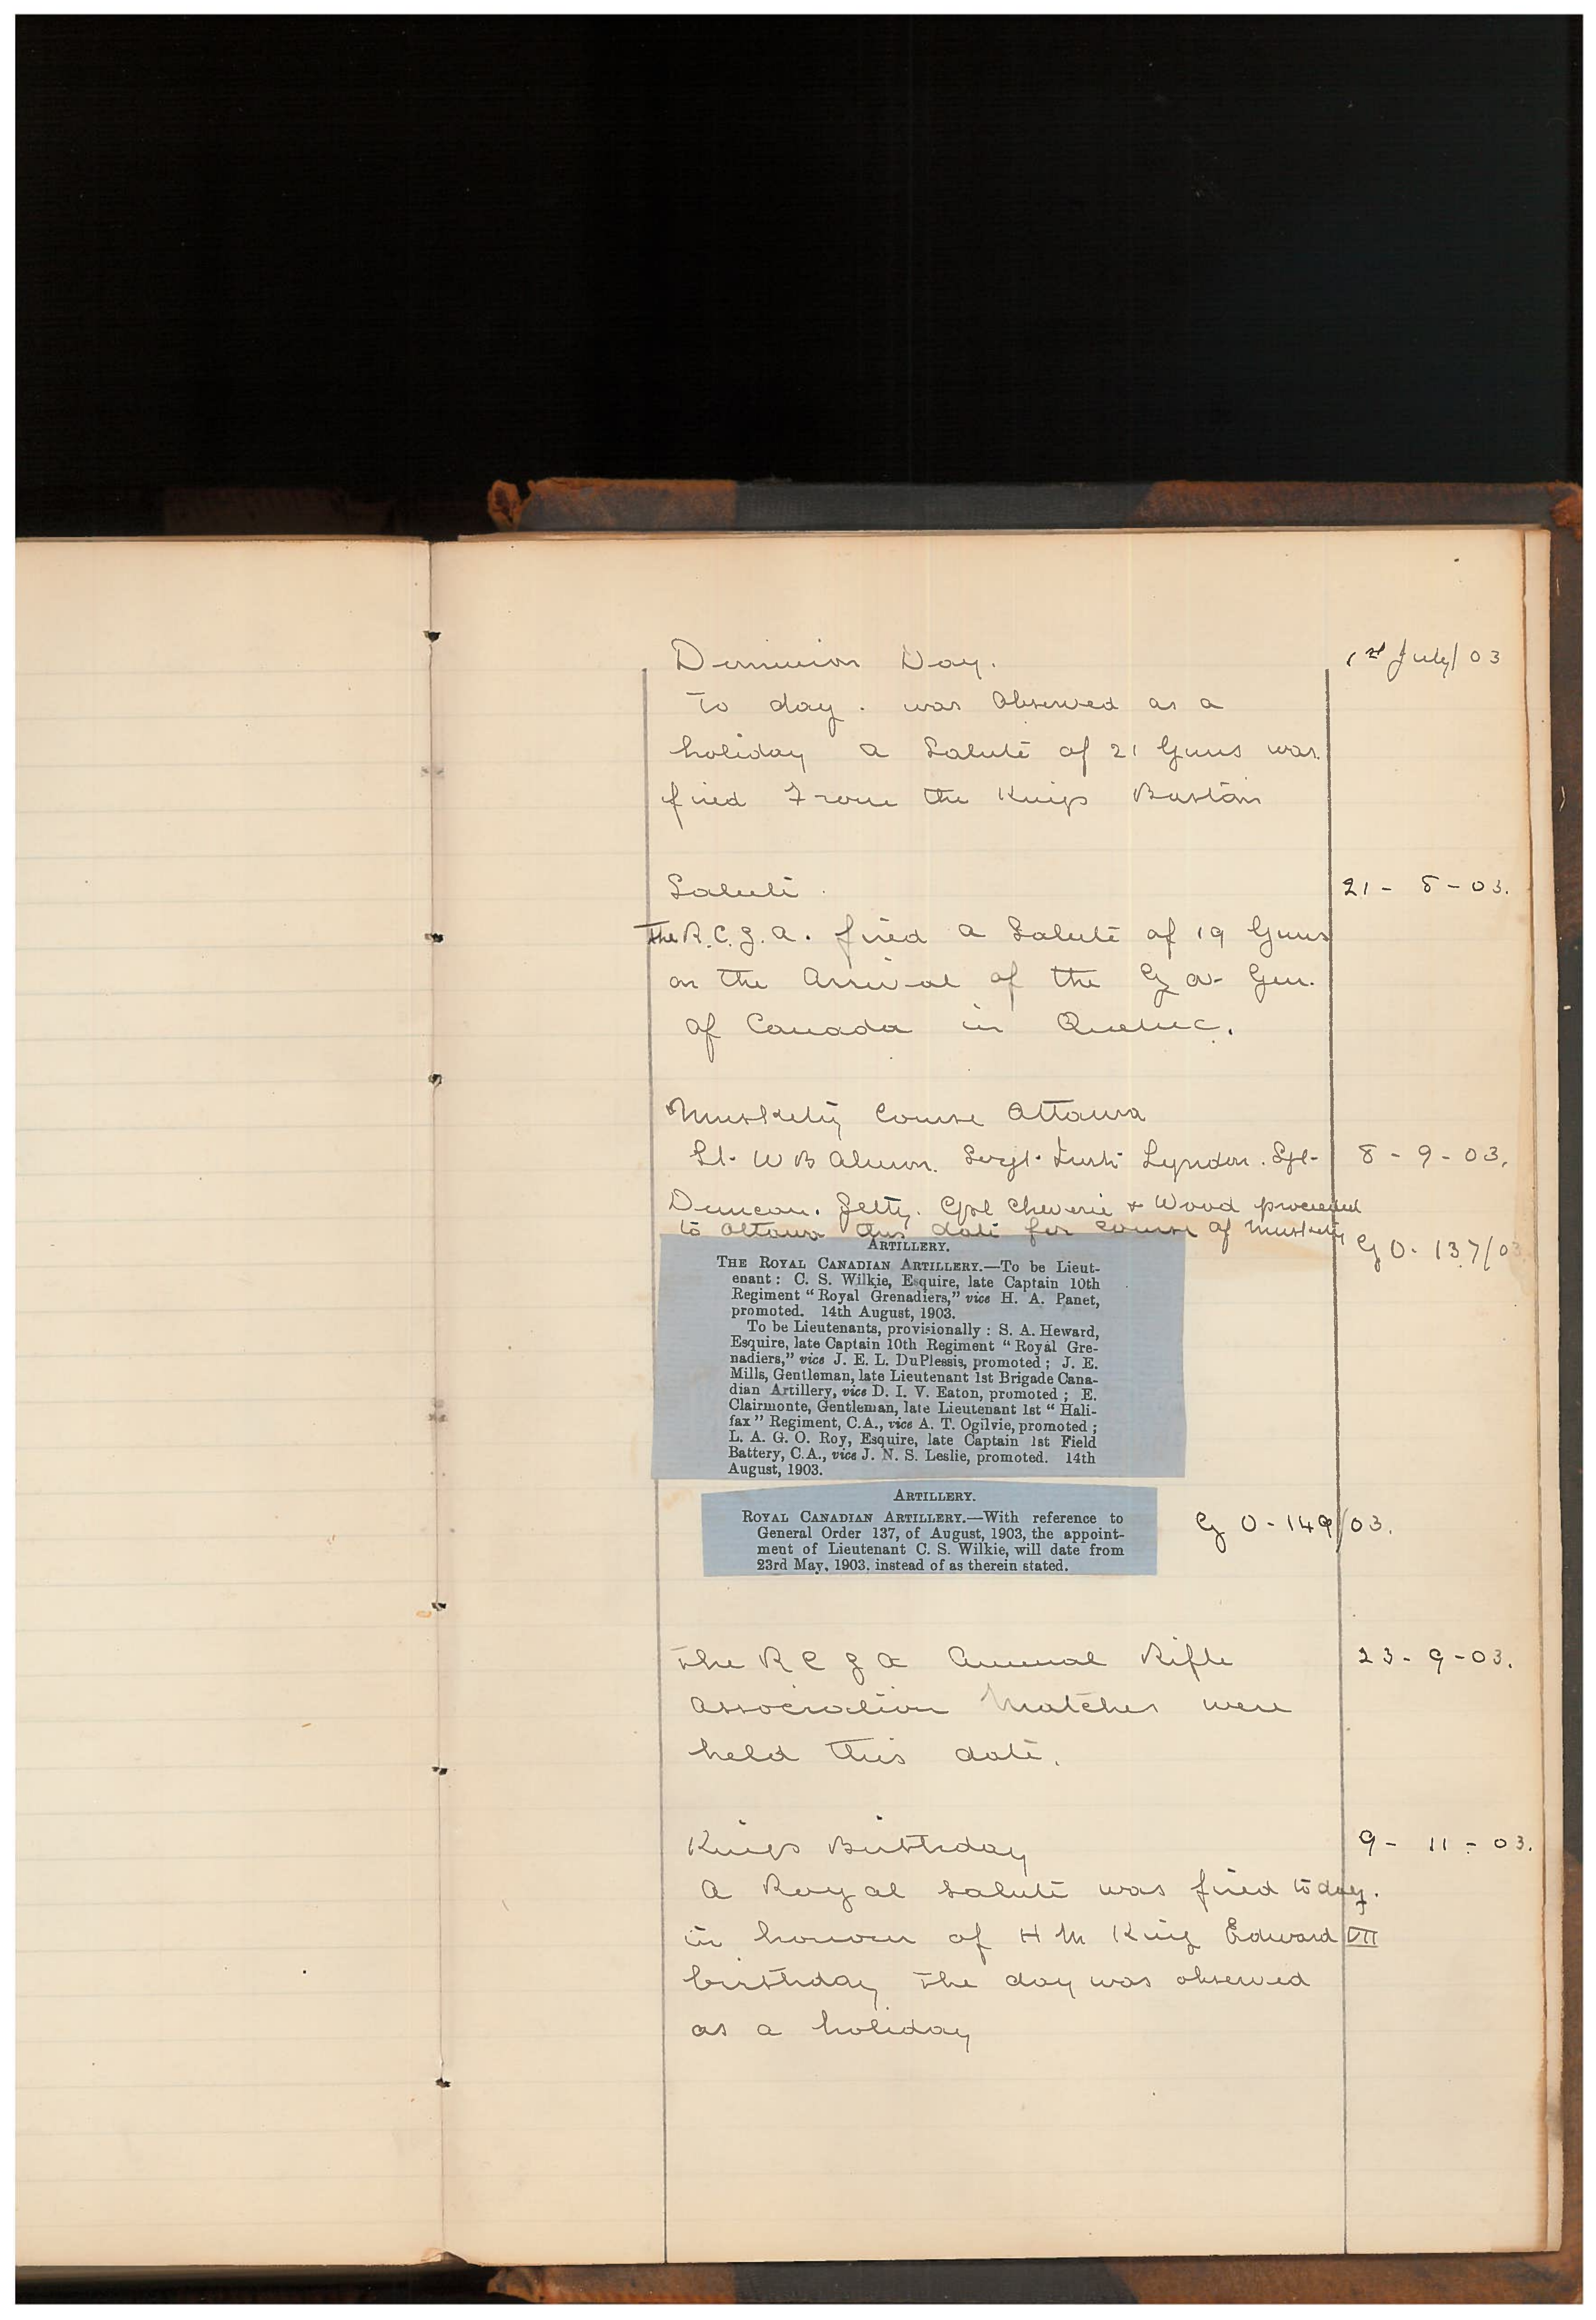 Dominion Day. 1st July/03
To day. was Observed as a
holiday a Salute of 21 Guns was
fired From the Kings Bastion
Salute. 21 - 8 - 03.
The R.C.G.A. fired a Salute of 19 Guns
on the Arrival of the Gov Gen.
of Canada in Quebec.
Musketry Course Ottawa
Lt. W B Almon. Sergt. Instr Lyndon. Sgt- 8 - 9 - 03.
Duncan. Jetty. Corpl Cheverie & Wood proceeded
to Ottawa this date for course of Musketry
G O - 137/03
ARTILLERY.
THE ROYAL CANADIAN ARTILLERY.—To be Lieut-
enant: C. S. Wilkie, Esquire, late Captain 10th
Regiment "Royal Grenadiers," vice H. A. Panet,
promoted. 14th August, 1903.
To be Lieutenants, provisionally: S. A. Heward,
Esquire, late Captain 10th Regiment "Royal Gre-
nadiers," vice J. E. L. DuPlessis, promoted; J. E.
Mills, Gentleman, late Lieutenant 1st Brigade Cana-
dian Artillery, vice D. I. V. Eaton, promoted; E.
Clairmonte, Gentleman, late Lieutenant 1st "Hali-
fax" Regiment, C.A., vice A. T. Ogilvie, promoted;
L. A. G. O. Roy, Esquire, late Captain 1st Field
Battery, C.A., vice J. N. S. Leslie, promoted. 14th
August, 1903.
ARTILLERY.
ROYAL CANADIAN ARTILLERY.—With reference to
General Order 137, of August, 1903, the appoint-
ment of Lieutenant C. S. Wilkie, will date from
23rd May, 1903, instead of as therein stated.
G O - 149/03.
The R C G A Annual Rifle 23 - 9 - 03.
Association Matches were
held this date.
Kings Birthday 9 - 11 - 03.
A Royal salute was fired to day.
in honour of H M King Edward VII
birthday the day was observed
as a holiday